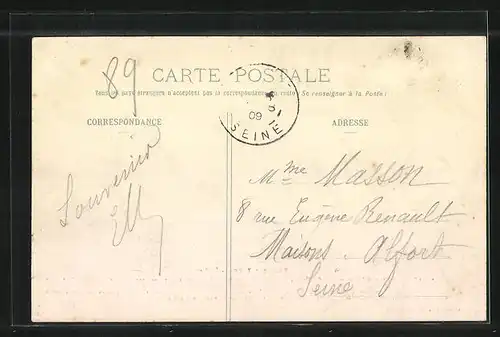 89
CARTE POSTALE
Tous les pays étrangers n'acceptent pas la correspondance au recto (Se renseigner à la Poste)
CORRESPONDANCE
ADRESSE
09
SEINE
Souvenir
Mme Masson
8 rue Eugène Renault
Maisons-Alfort
Seine